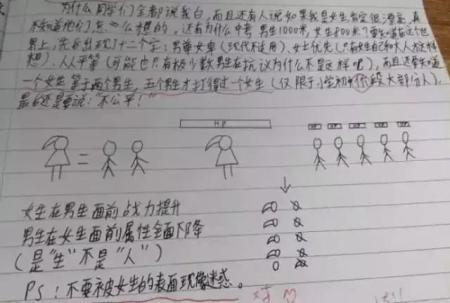 为什么同学们全都说我白,而且还有人说如果我是女生肯定很漂亮,真
不知道他们怎么想的。还有为什么中考 男生1000米,女生800米?要知道在这个世
界上,先后出现了十二个字:男尊女卑(现代不适用),女士优先(只有女生和大人这样
想),人人平等(可能也只有极少数男生在抗议为什么不是这样吧),而且还要知道
一个女生等于两个男生,五个男生才打得过一个女生(仅限于小学初中阶段大部分人),
最后还是要说:不公平!
HP
=
女生在男生面前战力提升
男生在女生面前属性全面下降
(是“生”不是“人”)
PS:不要被女生的表面现象迷惑。